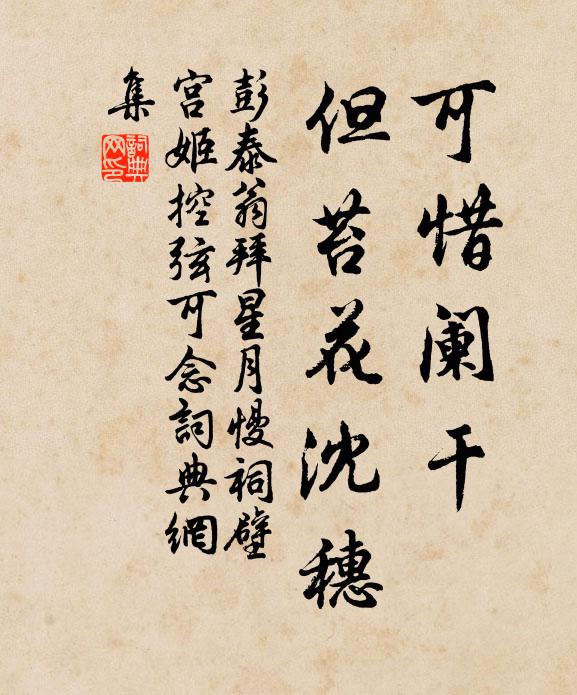 可惜阑干
但苔花沈穗
彭泰翁拜星月慢祠壁
宫姬控弦可念詞典網
集
詞典網印